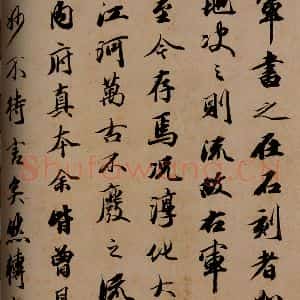 軍書之在石刻者如
地決之則流故右軍
至今存焉況淳化大
江河萬古不廢之流
内府真本余皆曾見
妙不待言矣然轉
Shufawang.CN